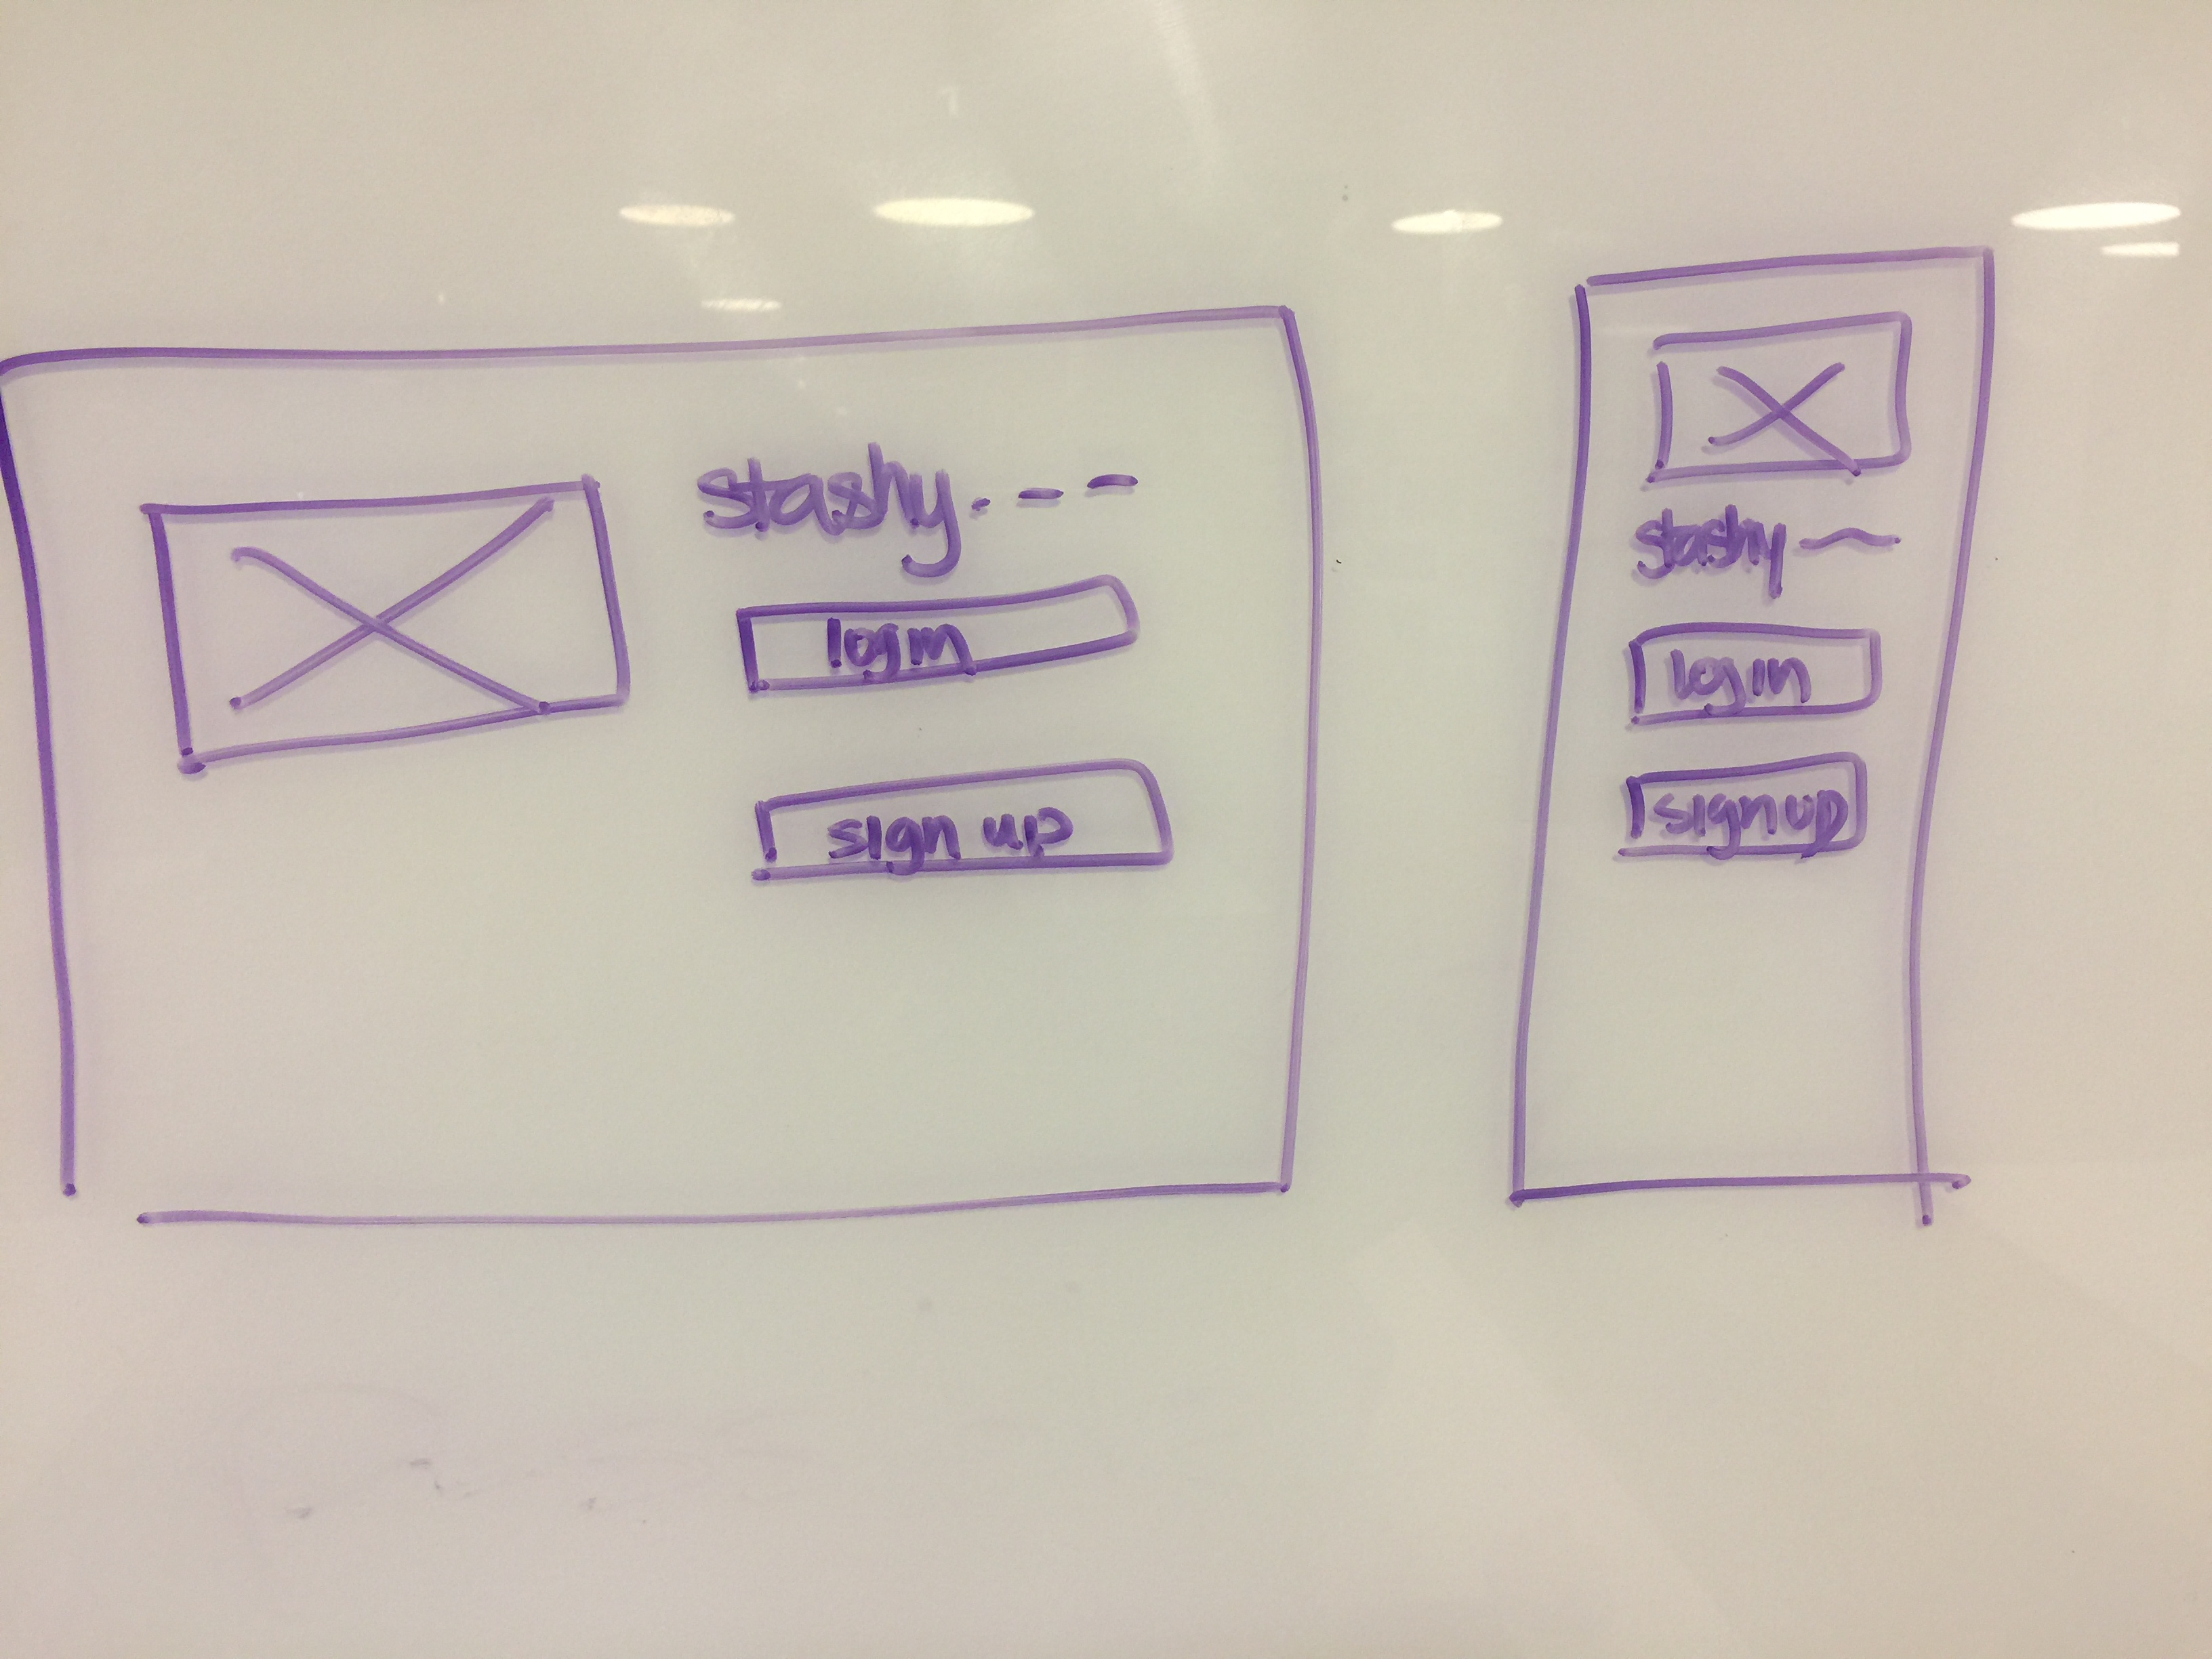 stashy. - -
login
sign up
stashy ~
login
sign up